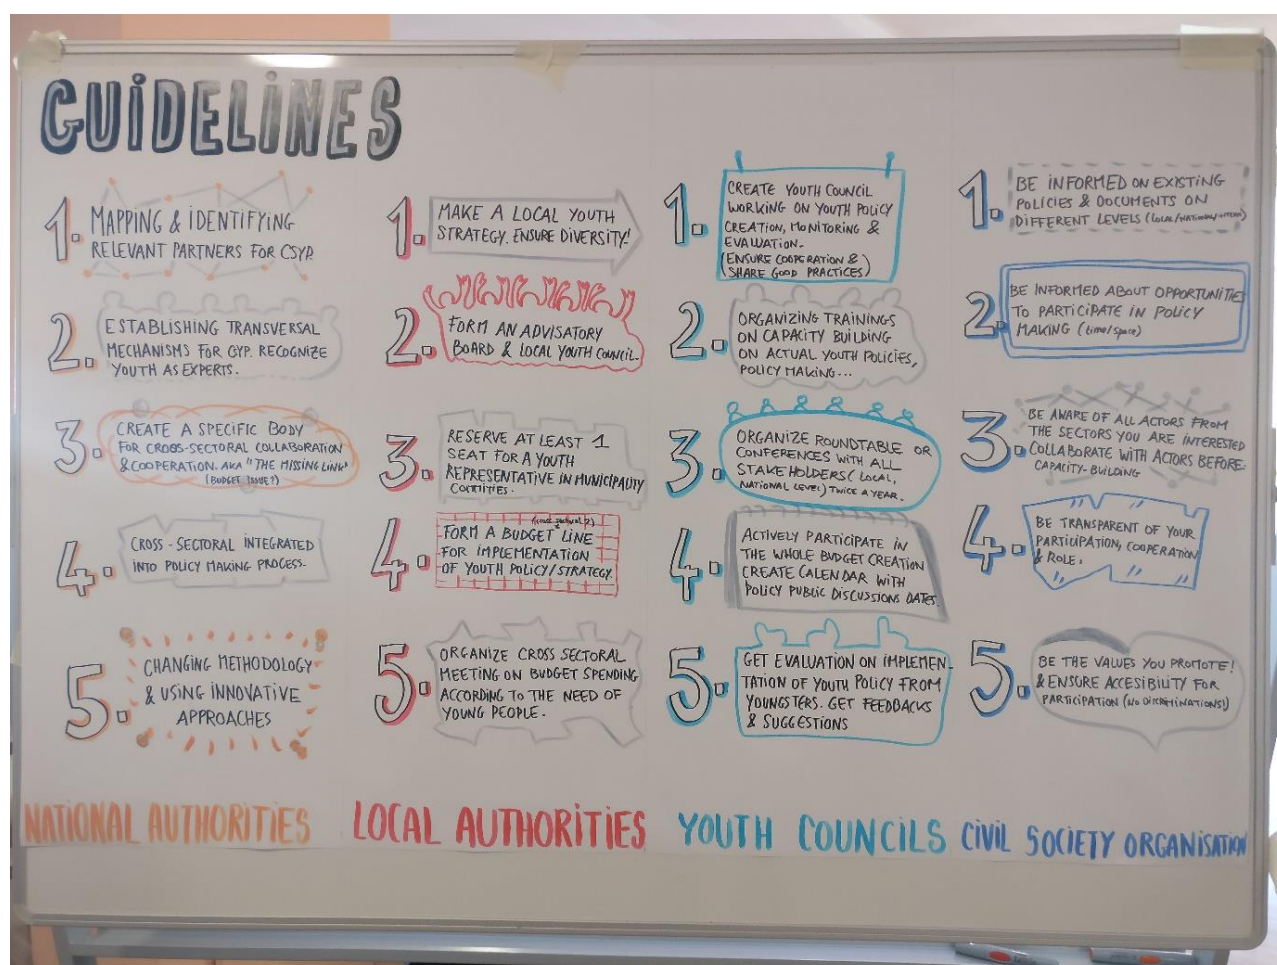 GUIDELINES
1. MAPPING & IDENTIFYING
RELEVANT PARTNERS FOR CSYP.
2. ESTABLISHING TRANSVERSAL
MECHANISMS FOR CYP. RECOGNIZE
YOUTH AS EXPERTS.
3. CREATE A SPECIFIC BODY
FOR CROSS-SECTORAL COLLABORATION
& COOPERATION. AKA "THE MISSING LINK"
(BUDGET ISSUE?)
4. CROSS-SECTORAL INTEGRATED
INTO POLICY MAKING PROCESS.
5. CHANGING METHODOLOGY
& USING INNOVATIVE
APPROACHES
NATIONAL AUTHORITIES
1. MAKE A LOCAL YOUTH
STRATEGY. ENSURE DIVERSITY!
2. FORM AN ADVISATORY
BOARD & LOCAL YOUTH COUNCIL.
3. RESERVE AT LEAST 1
SEAT FOR A YOUTH
REPRESENTATIVE IN MUNICIPALITY
4. FORM A BUDGET LINE
FOR IMPLEMENTATION
OF YOUTH POLICY/STRATEGY.
5. ORGANIZE CROSS SECTORAL
MEETING ON BUDGET SPENDING
ACCORDING TO THE NEED OF
YOUNG PEOPLE.
LOCAL AUTHORITIES
1. CREATE YOUTH COUNCIL
WORKING ON YOUTH POLICY
CREATION, MONITORING &
EVALUATION.
(ENSURE COOPERATION &)
(SHARE GOOD PRACTICES)
2. ORGANIZING TRAININGS
ON CAPACITY BUILDING
ON ACTUAL YOUTH POLICIES,
POLICY MAKING...
3. ORGANIZE ROUNDTABLE OR
CONFERENCES WITH ALL
STAKEHOLDERS (LOCAL,
NATIONAL LEVEL) TWICE A YEAR.
4. ACTIVELY PARTICIPATE IN
THE WHOLE BUDGET CREATION
CREATE CALENDAR WITH
POLICY PUBLIC DISCUSSIONS DATES.
5. GET EVALUATION ON IMPLEMEN-
TATION OF YOUTH POLICY FROM
YOUNGSTERS. GET FEEDBACKS
& SUGGESTIONS
YOUTH COUNCILS
1. BE INFORMED ON EXISTING
POLICIES & DOCUMENTS ON
DIFFERENT LEVELS
2. BE INFORMED ABOUT OPPORTUNITIES
TO PARTICIPATE IN POLICY
MAKING (time/space)
3. BE AWARE OF ALL ACTORS FROM
THE SECTORS YOU ARE INTERESTED
COLLABORATE WITH ACTORS BEFORE.
CAPACITY-BUILDING
4. BE TRANSPARENT OF YOUR
PARTICIPATION, COOPERATION
& ROLE.
5. BE THE VALUES YOU PROMOTE!
& ENSURE ACCESIBILITY FOR
PARTICIPATION (NO DISCRIMINATIONS!)
CIVIL SOCIETY ORGANISATION